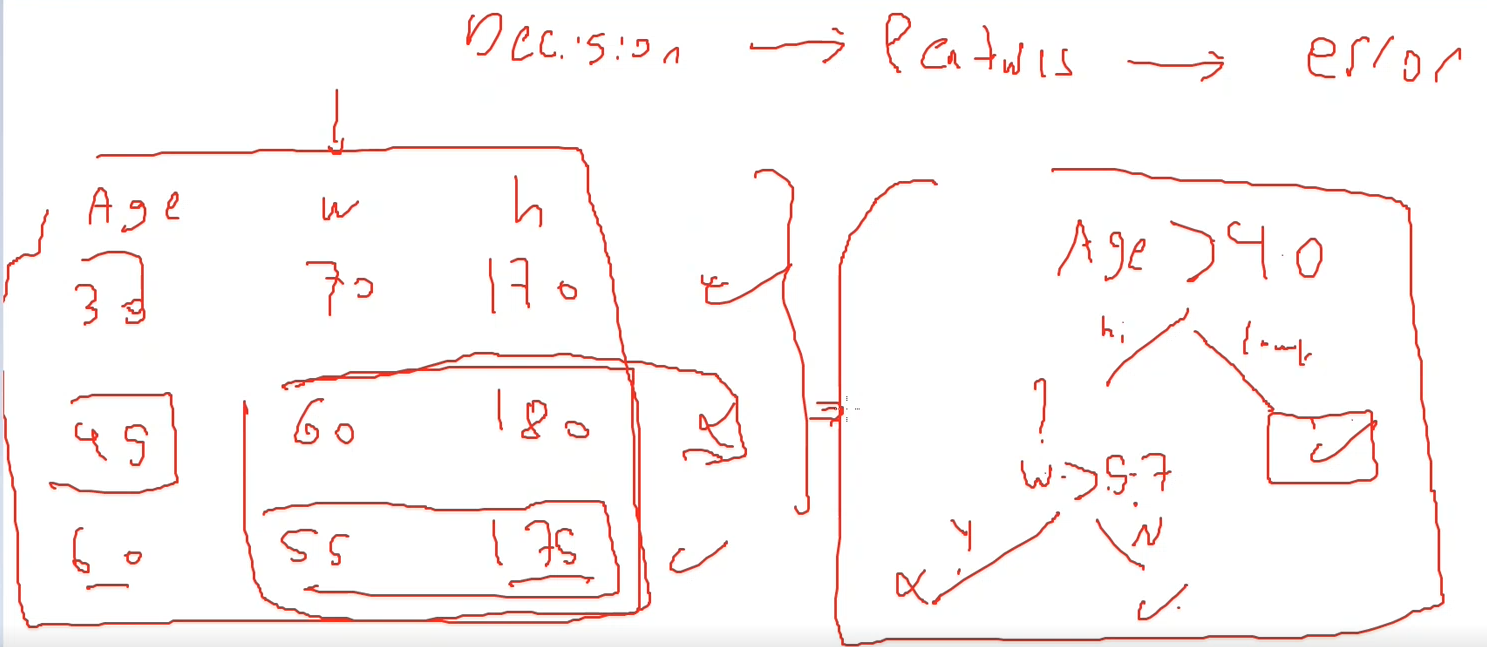 Decision → Featurs → error
Age w h
30 70 170
45 60 180
60 55 175
Age > 40
?
W > 57
Y N